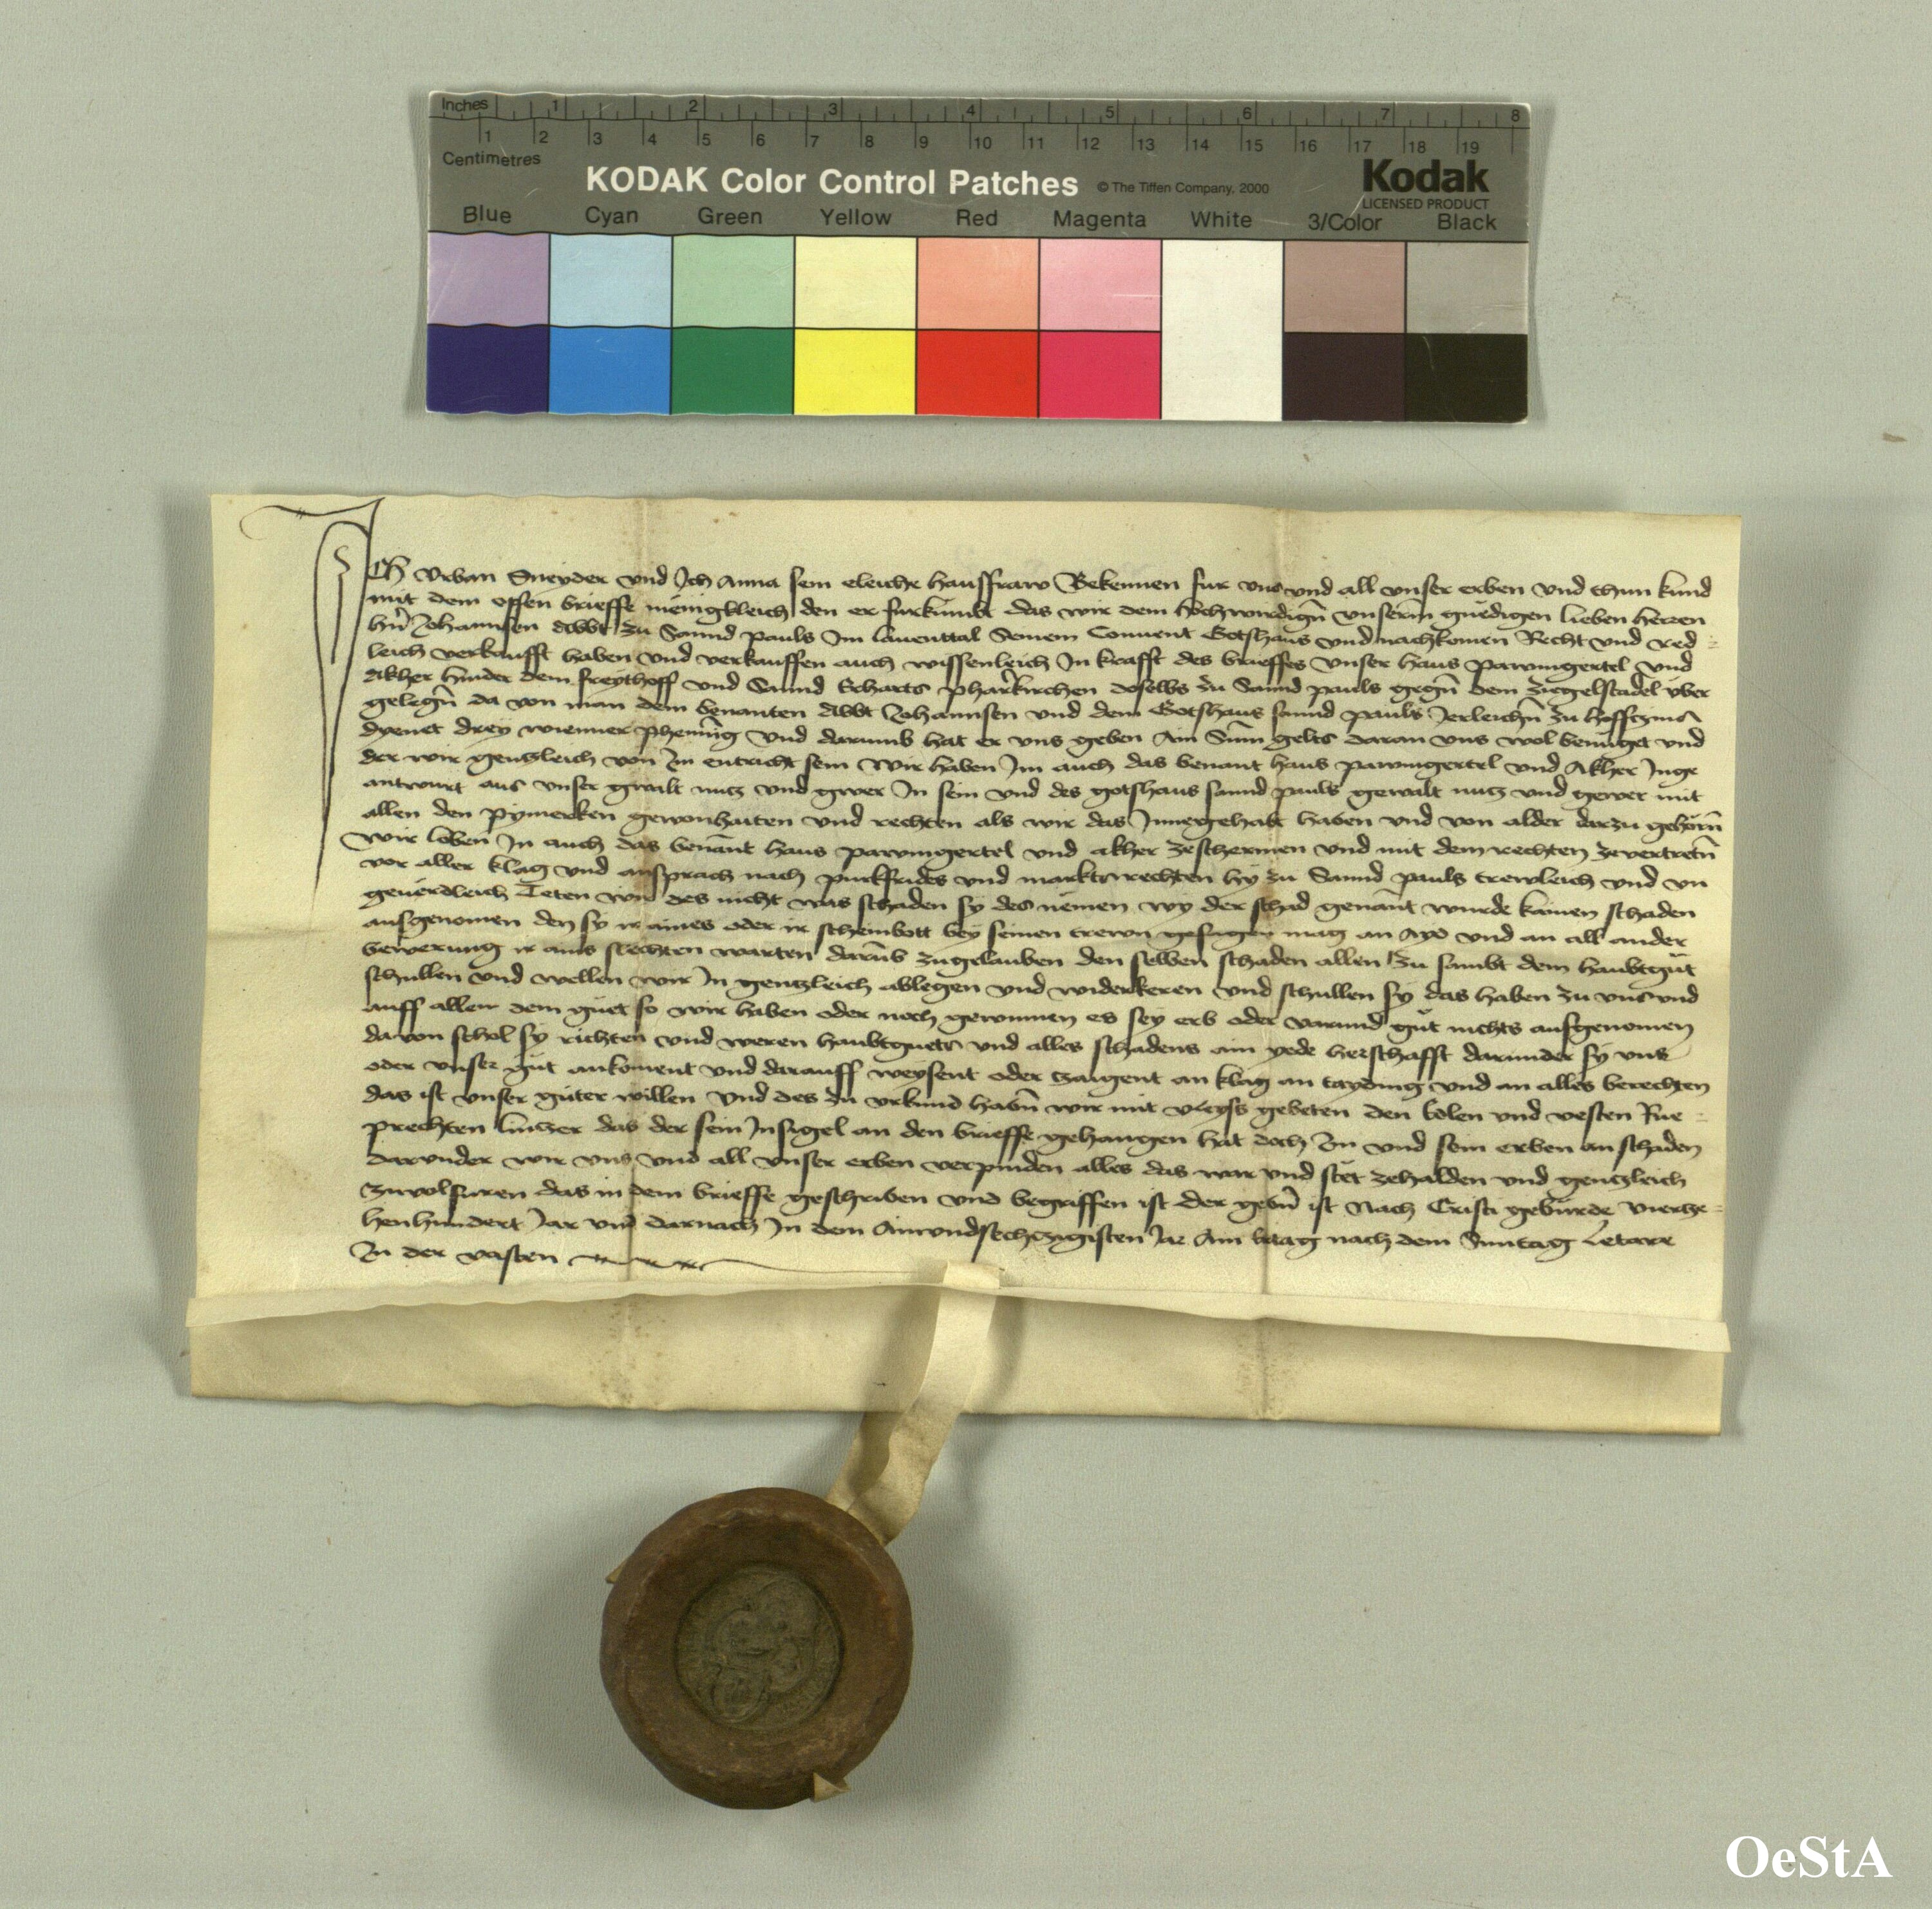 Inches 1 2 3 4 5 6 7 8
1 2 3 4 5 6 7 8 9 10 11 12 13 14 15 16 17 18 19
Centimetres
KODAK Color Control Patches © The Tiffen Company, 2000 Kodak
LICENSED PRODUCT
Blue Cyan Green Yellow Red Magenta White 3/Color Black
Ich Urban Sneyder vnd Ich Anna sein eleiche hausfraw Bekennen fur vns vnd all vnser erben vnd thun kund
mit dem offen brieffe menigkleich den er furkumbt das wir dem hochwirdign vnserm gnedigen lieben herren
hern Johannsen Abbt zu Sannd pauls Im lauenttal Seinem Conuent Gotshaus vnd nachkomen Recht vnd red
leich verkaufft haben vnd verkauffen auch wissenleich In krafft des brieffes vnser haus pawmgertel vnd
Akher hinder dem freythoff vnd Sannd Erharts pharrkirchen doselbs zu Sannd pauls gegn dem ziegelstadel über
gelegn da von man dem benanten Abbt Johannsen vnd dem Gotshaus sannd pauls Jerleichn zu hoffczins
dyenet drey wienner phening vnd darumb hat er vns geben Ain Sum gelts daran vns wol benüget vnd
der wir gentzleich von Im entricht sein Wir haben Im auch das benant haus pawmgertel vnd Akher Inge
antwurt aus vnser gwalt nutz vnd gwer In sein vnd des gotshaus sannd pauls gewalt nutz vnd gewer mit
allen den pymerken gewonhaiten vnd rechten als wir das Innegehabt haben vnd von alder darzu gehorn
Wir loben In auch das benant haus pawmgertel vnd akher zeschermen vnd mit dem rechten zevertretn
vor aller klag vnd ansprach nach purkfrides vnd marktsrechten hy zu Sannd pauls trewleich vnd vn
geuerdleich Teten wir des nicht was schaden sy des nemen wy der schad genant wurde kainen schaden
ausgenomen den sy ir aines oder ir scheinbott bey seinen trewn gesagen mag an ayd vnd an all ander
bewerung ir ains slechten warten darumb zugelauben den selben schaden allen zu sambt dem haubtgut
schullen vnd wellen wir In gentzleich ablegen vnd widerkeren vnd schullen sy das haben zu vns vnd
auff allem dem guet so wir haben oder noch gewinnen es sey erb oder varund gut nichts ausgenomen
dauon schol sy richten vnd weren haubtguets vnd alles schadens ain yede herschafft darunder sy vns
oder vnser gut ankoment vnd darauff weysent oder zaigent an klag an tayding vnd an alles berechten
das ist vnser guter willen vnd des zu vrkund habn wir mit vleyss gebeten den Edlen vnd vesten Rue
prechten das der sein Insigel an den brieffe gehangen hat doch Im vnd sein erben an schaden
darunder wir vns vnd all vnser erben verpinden alles das war vnd stet zehalden vnd gentzleich
zuuolfuren das in dem brieffe geschriben vnd begriffen ist der gebn ist Nach Cristi geburde vierze
henhundert Jar vnd darnach In dem Ainundsechczigisten Jar Am nach dem Sunntag Letare
In der vasten
OeStA